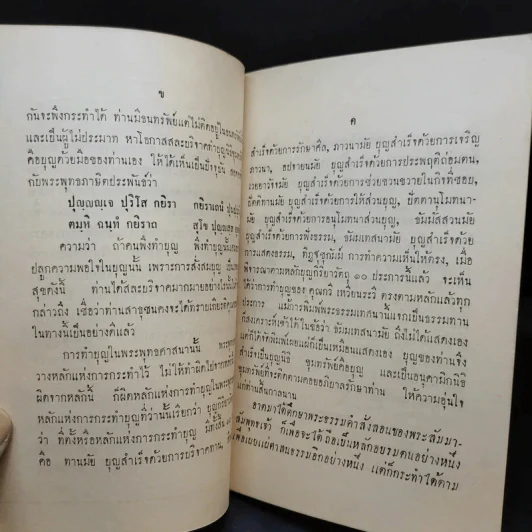 ข
กันจะพึงกระทำได้ ท่านมีอนทรัพย์แต่ไม่ติดอยู่ใน
และเป็นผู้ไม่ประมาท หาโอกาสสละบริจาคทำบุญ
คือบุญด้วยมือของท่านเอง ให้ได้เห็นเป็น
กับพระพุทธภาษิตประพันธ์ว่า
ปุญฺญญฺเจ ปุริโส กยิรา กยิราเถนํ
ตมฺหิ ฉนฺทํ กยิราถ สุโข
ความว่า ถ้าคนพึงทำบุญ พึงทำบุญ
ปลูกความพอใจในบุญนั้น เพราะการสั่งสมบุญ
สุขดังนี้ ท่านได้สละบริจาคมากมายอย่าง
กล่าวถึง เชื่อว่าท่านสาธุชนคงจะได้ทราย
ในทางนี้เป็นอย่างดีแล้ว
การทำบุญในพระพุทธศาสนานั้น
วางหลักแห่งการกระทำไว้ ไม่ให้ทำผิดไป
ผิดจากหลักนี้ ก็ผิดหลักแห่งการทำบุญใน
หลักแห่งการกระทำบุญที่ว่านั้นเรียกว่า
ว่า ที่ตั้งหรือหลักแห่งการกระทำบุญ
คือ ทานมัย บุญสำเร็จด้วยการบริจาคทาน,
ค
สำเร็จด้วยการรักษาศีล, ภาวนามัย บุญสำเร็จด้วยการเจริญ
ภาวนา, อปจายนมัย บุญสำเร็จด้วยการประพฤติถ่อมตน,
เวยยาวัจจมัย บุญสำเร็จด้วยการช่วยขวนขวายในกิจที่ชอบ,
ปัตติทานมัย บุญสำเร็จด้วยการให้ส่วนบุญ, ปัตตานุโมทนา-
มัย บุญสำเร็จด้วยการอนุโมทนาส่วนบุญ, ธัมมัสสวนมัย
บุญสำเร็จด้วยการฟังธรรม, ธัมมเทสนามัย บุญสำเร็จด้วย
การแสดงธรรม, ทิฏฐุชุกัมม์ การทำความเห็นให้ตรง, เมื่อ
พิจารณาตามหลักบุญกิริยาวัตถุ ๑๐ ประการนี้แล้ว จะเห็น
ได้ว่าการทำบุญของ คุณกวี เหวียนระวี ตรงตามหลักแล้วทุก
ประการ แม้การพิมพ์พระธรรมเทศนานี้แจกเป็นธรรมทาน
ก็สงเคราะห์เข้าได้ในข้อว่า ธัมมเทสนามัย ถึงไม่ได้แสดงเอง
แต่ก็ได้จัดพิมพ์เผยแผ่ก็เป็นเหมือนแสดงเอง บุญของท่านจึง
สำเร็จเป็นบุญนิธิ ขุมทรัพย์คือบุญ และเป็นอนุคามิกนิธิ
ขุมทรัพย์ที่จะติดตามคอยอภิบาลรักษาท่าน ให้ความอุ่นใจ
แก่ท่านสิ้นกาลนาน
อาตมาได้ศึกษาพระธรรมคำสั่งสอนของพระสัมมา-
สัมพุทธเจ้า ก็เพื่อจะได้ถือเป็นหลักอบรมตนอย่างหนึ่ง
เพื่อเผยแผ่ศาสนธรรมอีกอย่างหนึ่ง แต่ก็กระทำได้ตาม